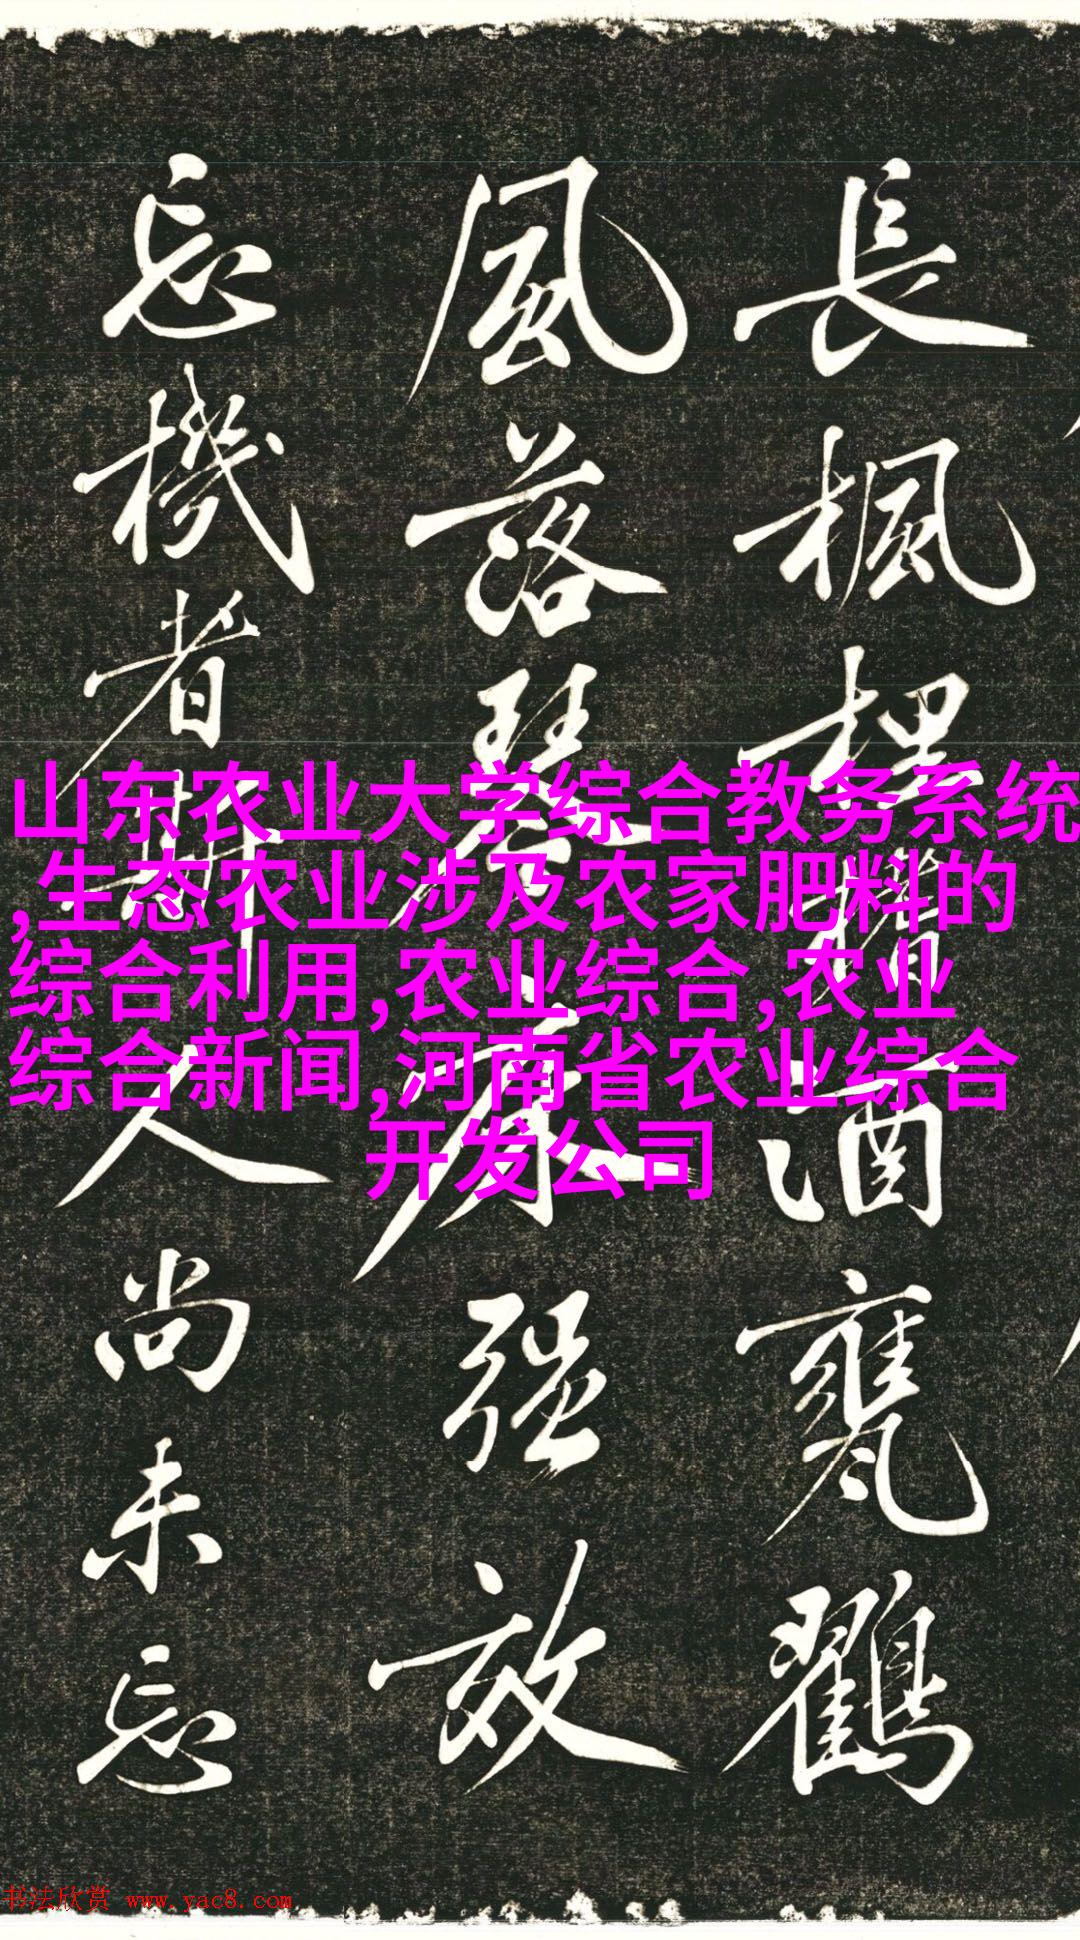 長楓酒甕
風落琴床强效
忘機者斯人尚未忘
山东农业大学综合教务系统
,生态农业涉及农家肥料的
综合利用,农业综合,农业
综合新闻,河南省农业综合
开发公司
书法欣赏 www.yac8.com